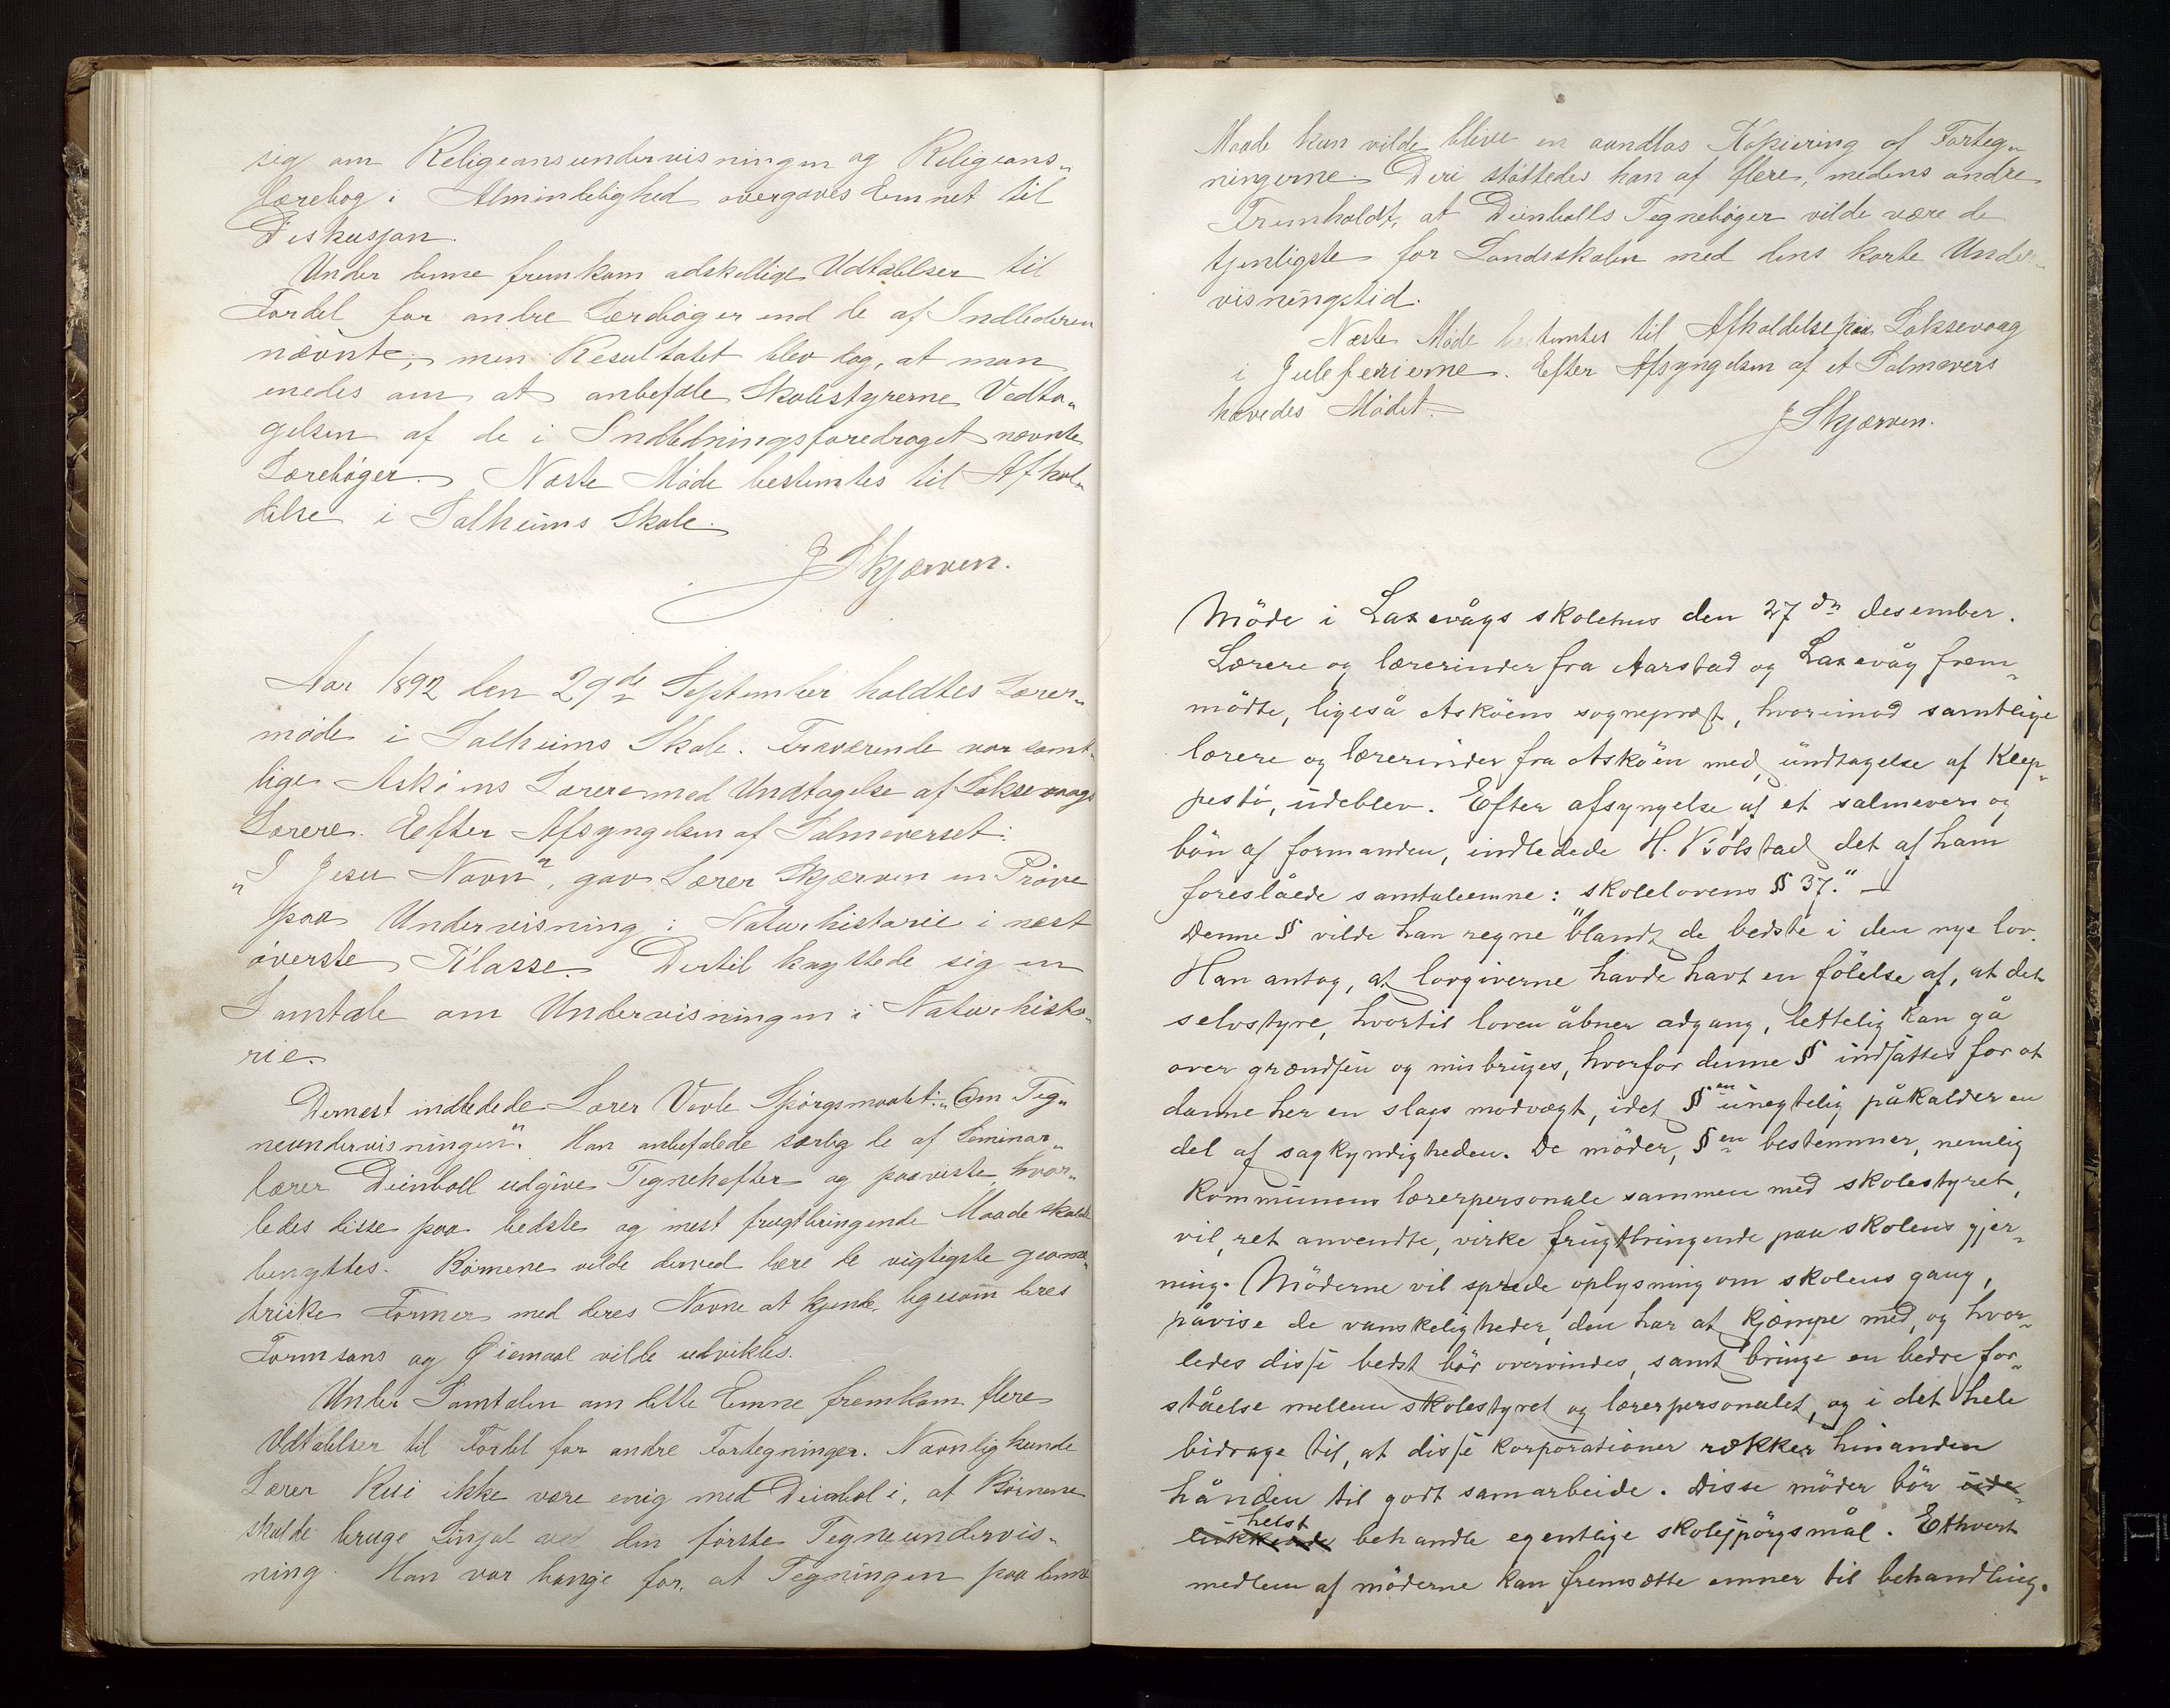 sig om Religionsundervisningen og Religions„
lærebog i Almindelighed overgaves Emnet til
Diskusjon.
Under denne fremkom adskellige Udtalelser til
Fordel for andre Lærebøger end de af Indlederen
nævnte; men Resultatet blev dog, at man
enedes om at anbefale Skolestyrerne Vedta„
gelsen af de i Indledningsforedraget nævnte
Lærebøger. Næste Møde bestemtes til Afhol„
delse i Salheims Skole.
J Skjerven.
Aar 1892 den 29de September holdtes Lærer„
møde i Salheims Skole. Fraværende var samt„
lige Askøens Lærere med Undtagelse af Laksevaags
Lærere. Efter Afsyngelsen af Salmeverset:
„I Jesu Navn", gav Lærer Skjerven en Prøve
paa Undervisning i Naturhistorie i næst
øverste Klasse. Dertil knyttede sig en
Samtale om Undervisningen i Naturhisto„
rie.
Dernæst indledede Lærer Vevle Spørgsmaalet: „Om Teg„
neundervisningen". Han anbefalede særlig de af Seminar„
lærer Deinboll udgivne Tegnehefter og paaviste, hvor„
ledes disse paa bedste og mest frugtbringende Maade skulde
benyttes. Børnene vilde derved lære de vigtigste geome„
triske Former med deres Navne at kjende, ligesom deres
Formsans og Øiemaal vilde udvikles.
Under Samtalen om dette Emne fremkom flere
Udtalelser til Fordel for andre Fortegninger. Navnlig kunde
Lærer Rui ikke være enig med Deinbol i, at Børnene
skulde bruge Linjal ved den første Tegneundervis„
ning. Han var bange for, at Tegningen paa denne
Maade kun vilde blive en aandløs Kopiering af Forteg„
ningerne. Deri støttedes han af flere, medens andre
Fremholdt, at Deinbolls Tegnebøger vilde være de
tjenligste for Landsskolen med dens korte Under„
visningstid.
Næste Møde bestemtes til Afholdelse paa Laksevaag
i Juleferierne. Efter Afsyngelsen af et Salmevers
hævedes Mødet.
J Skjerven.
Möde i Laxevågs skolehus den 27dn desember.
Lærere og lærerinder fra Aarstad og Laxevåg frem„
mödte, ligeså Asköens sogneprest, hvorimod samtlige
lærere og lærerinder fra Asköen med undtagelse af Klep„
pestö, udeblev. Efter afsyngelse af et salmevers og
bön af formanden, indledede H. Kjölstad det af ham
foreslåede samtaleemne: skolelovens § 37." —
Denne § vilde han regne blandt de bedste i den nye lov.
Han antog, at lovgiverne havde havt en fölelse af, at det
selvstyre, hvortil loven åbner adgang, lettelig kan gå
over grændsen og misbruges, hvorfor denne § indsattes for at
danne her en slags modvægt, idet §en unegtelig påkalder en
del af sagkyndigheden. De möder, §en bestemmer, nemlig
kommunens lærerpersonale sammen med skolestyret,
vil, ret anvendte, virke frugtbringende paa skolens gjer„
ning. Möderne vil sprede oplysning om skolens gang,
påvise de vanskeligheder, den har at kjæmpe med, og hvor„
ledes disse bedst bör overvindes, samt bringe en bedre for„
ståelse mellem skolestyret og lærerpersonalet, og i det hele
bidrage til, at disse korporationer rækker hinanden
hånden til godt samarbeide. Disse möder bör ude„
lukkende helst behandle egentlige skolespörgsmål. Ethvert
medlem af möderne kan fremsætte emner til behandling.